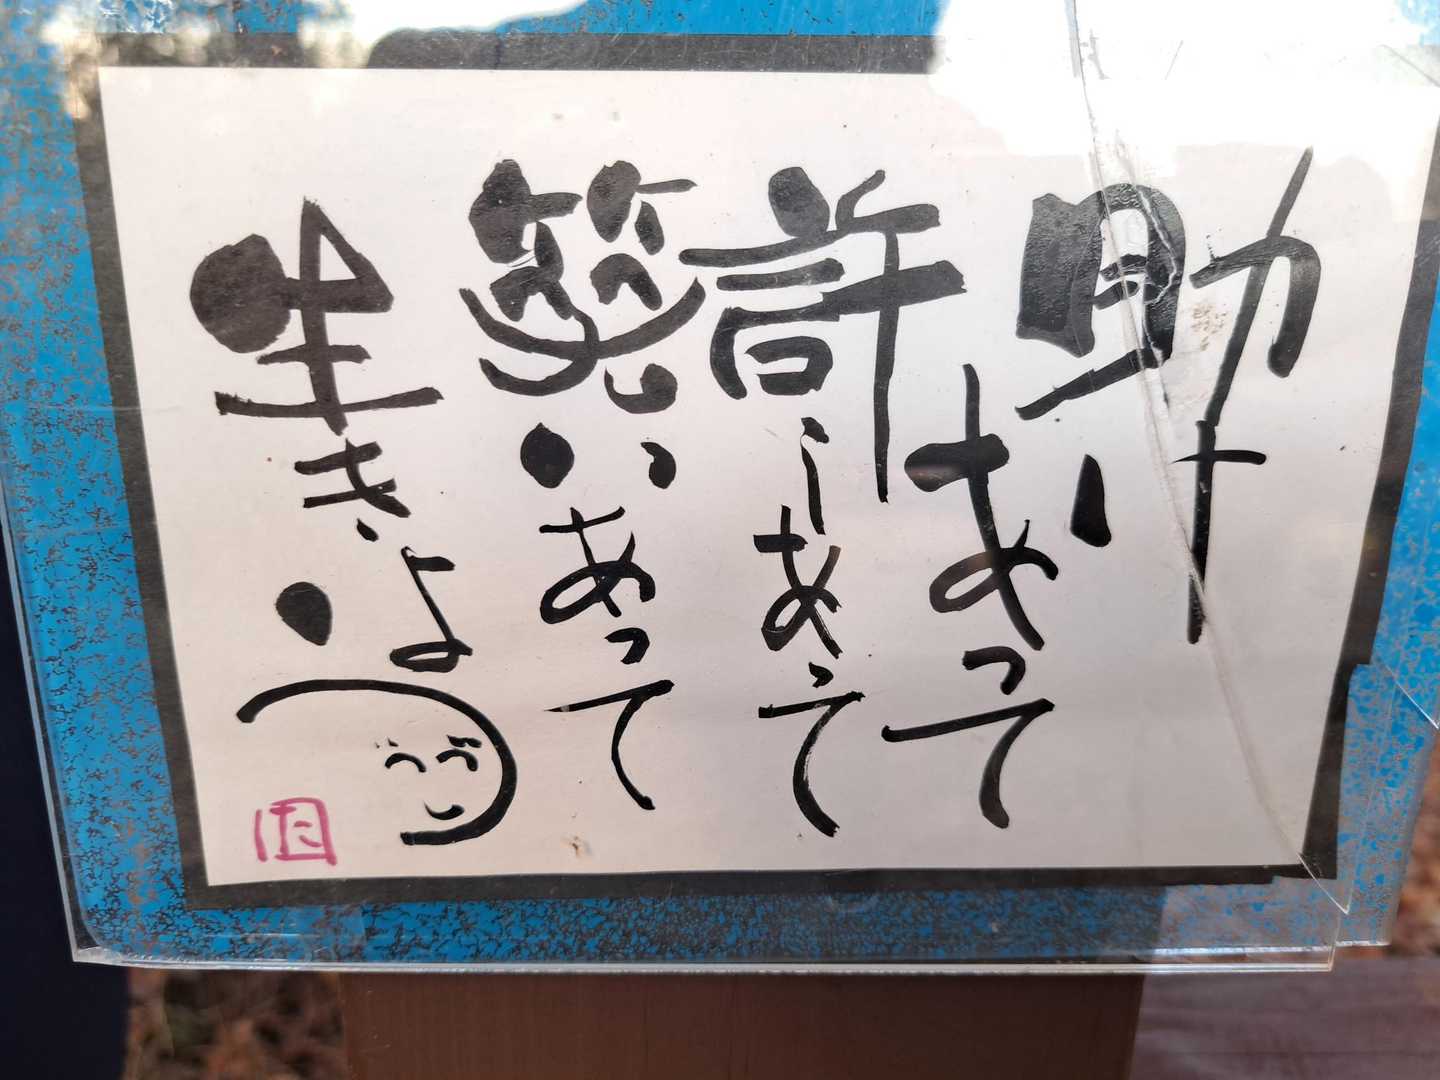 助けあって
許しあって
笑いあって
生きよう